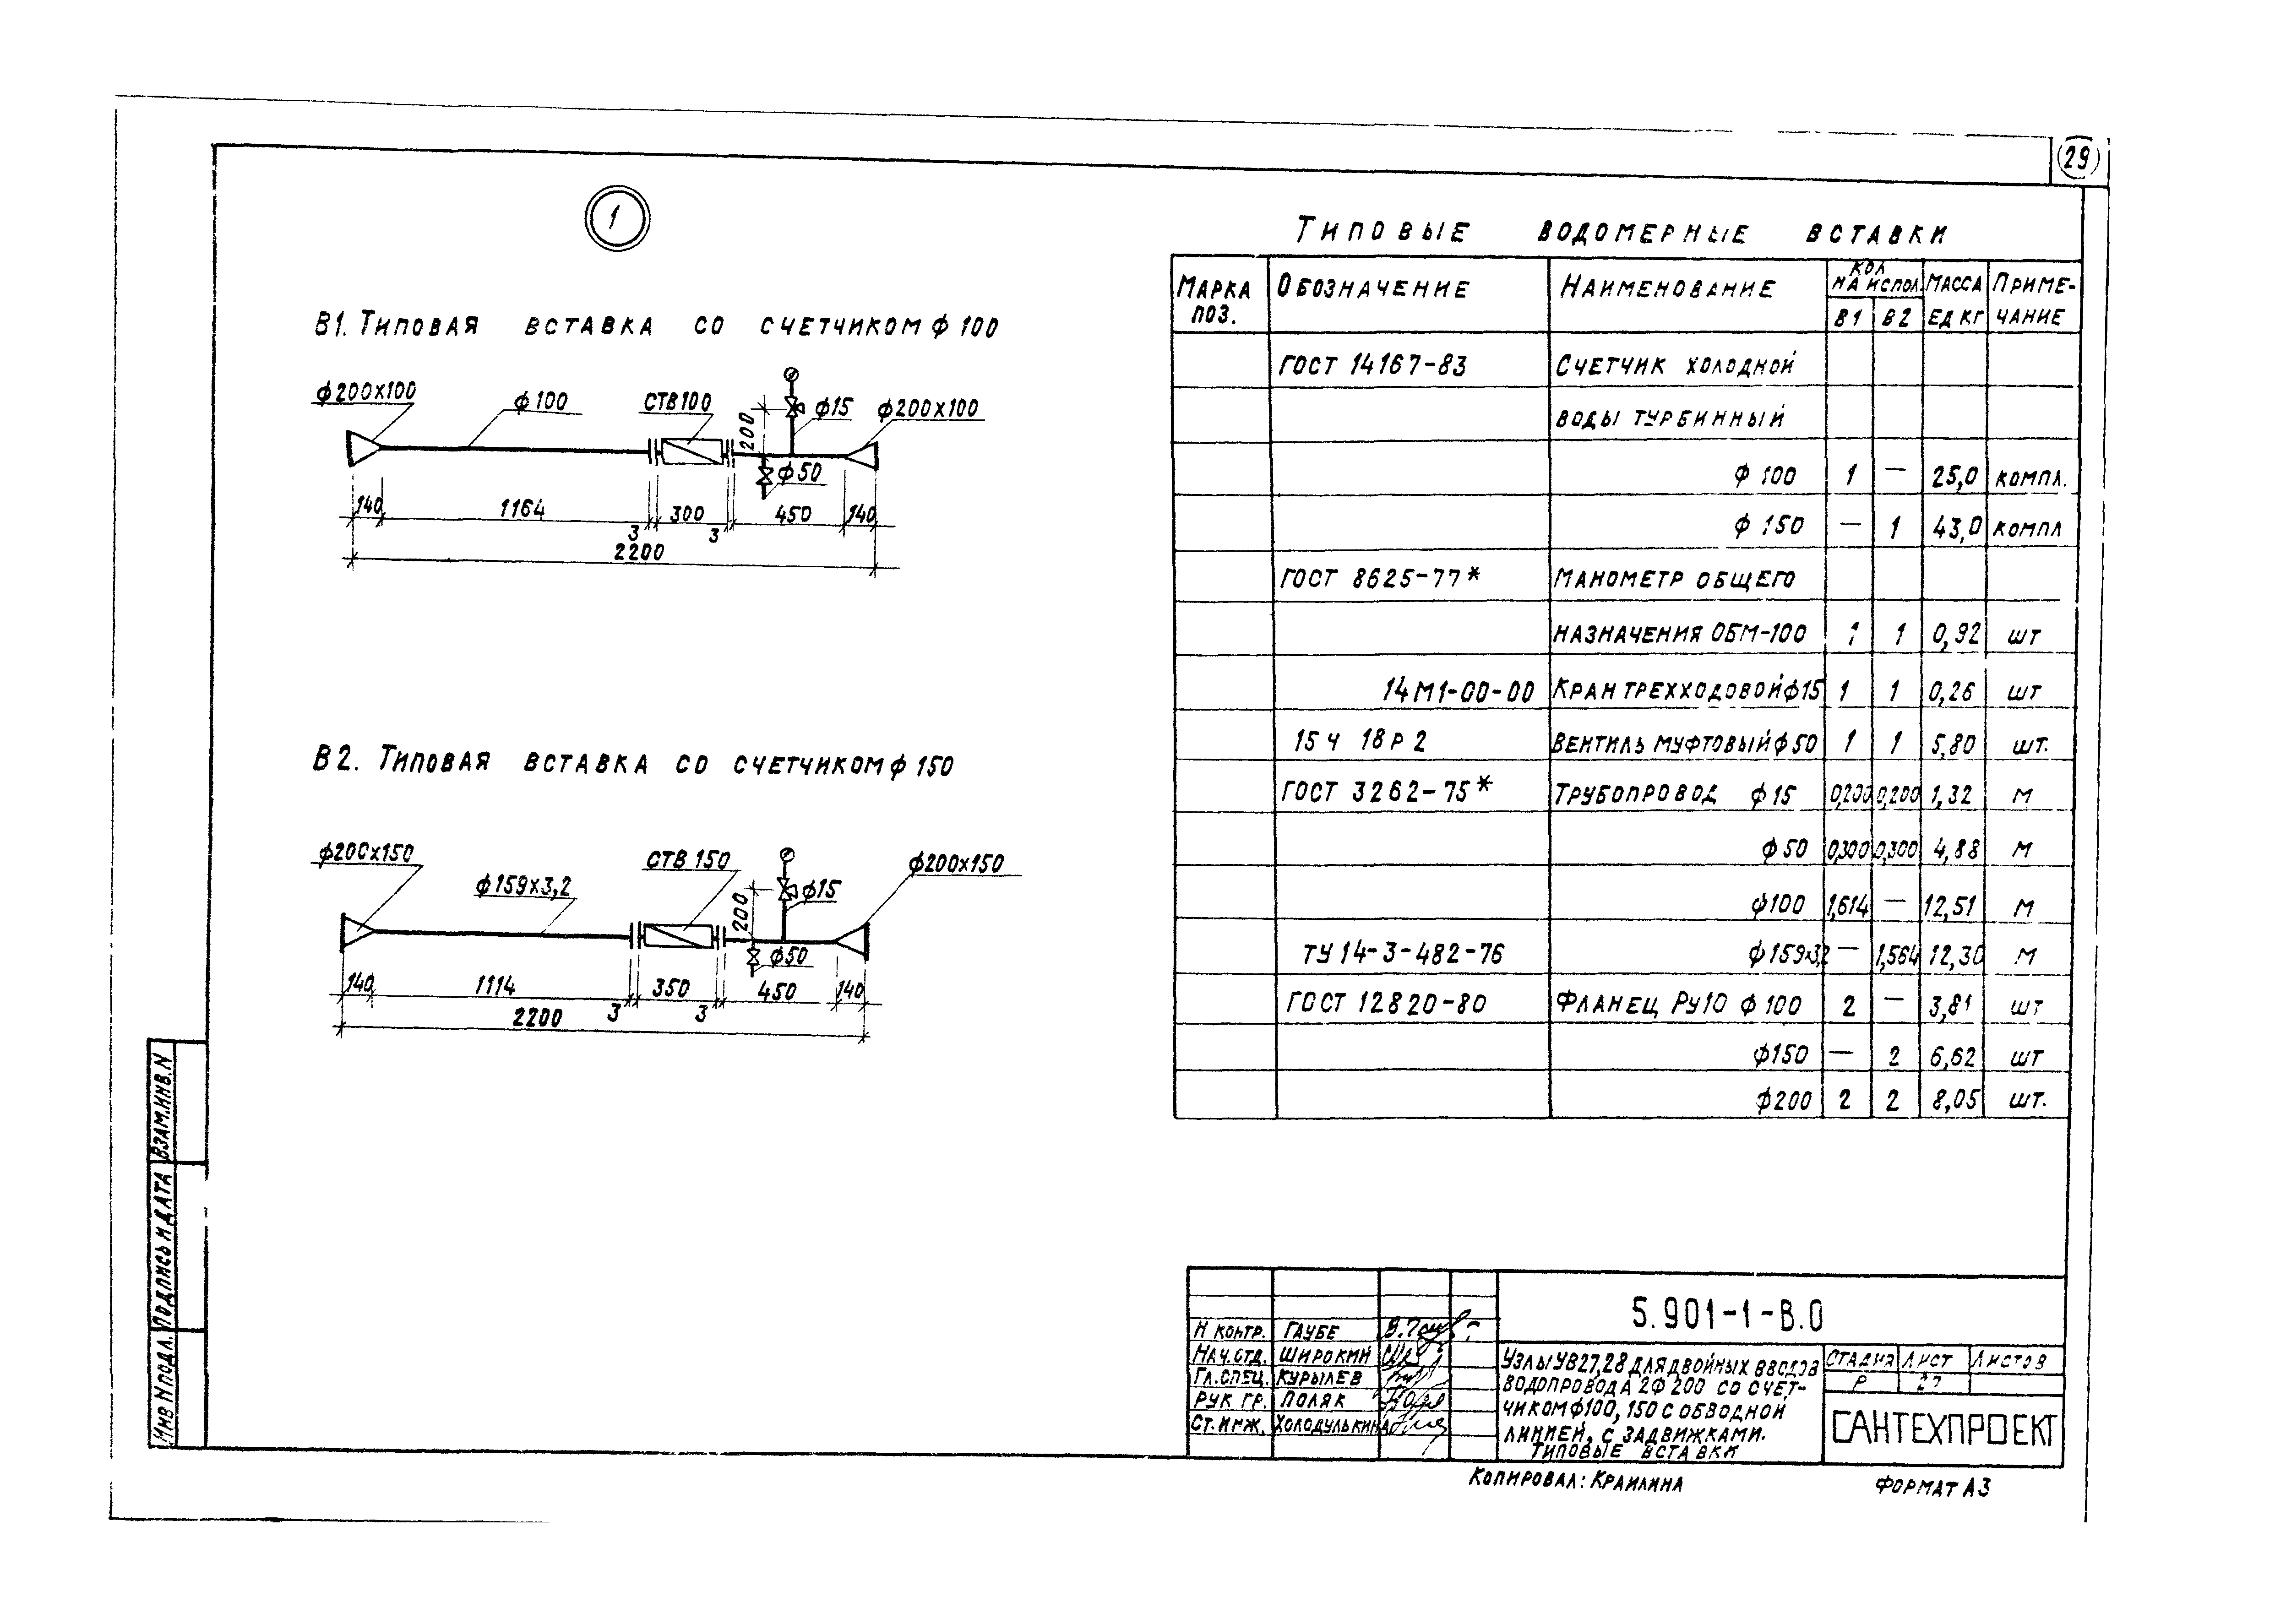 29
1
В1. Типовая вставка со счетчиком ф 100
ф200х100
ф100
СТВ100
200
ф15
ф200х100
ф50
140
1164
3
300
3
450
140
2200
В2. Типовая вставка со счетчиком ф 150
ф200х150
ф159х3,2
СТВ 150
200
ф15
ф200х150
ф50
140
1114
3
350
3
450
140
2200
Типовые водомерные вставки
Марка поз. Обозначение Наименование Кол на испол. В1 В2 Масса ед кг Приме-чание
ГОСТ 14167-83 Счетчик холодной
воды турбинный
ф 100 1 — 25,0 компл.
ф 150 — 1 43,0 компл
ГОСТ 8625-77* Манометр общего
назначения ОБМ-100 1 1 0,92 шт
14М1-00-00 Кран трехходовой ф15 1 1 0,26 шт
15ч 18р2 Вентиль муфтовый ф50 1 1 5,80 шт.
ГОСТ 3262-75* Трубопровод ф15 0,200 0,200 1,32 м
ф50 0,300 0,300 4,88 м
ф100 1,614 — 12,51 м
ТУ 14-3-482-76 ф159х3,2 — 1,564 12,30 м
ГОСТ 12820-80 Фланец Ру10 ф100 2 — 3,81 шт
ф150 — 2 6,62 шт
ф200 2 2 8,05 шт.
Взам.инв.N
Подпись и дата
Инв N подл.
5.901-1-В.0
Н контр. Гаубе
Нач.отд. Широкий
Гл.спец. Курылев
Рук гр. Поляк
Ст.инж. Холодулькина
Узлы УВ27,28 для двойных вводов
водопровода 2ф200 со счет-
чиком ф100, 150 с обводной
линией, с задвижками.
Типовые вставки
Стадия Лист Листов
Р 27
САНТЕХПРОЕКТ
Копировал: Краилина
Формат А3